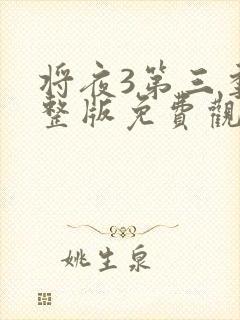 将夜3第三季
整版免費觀
姚生泉